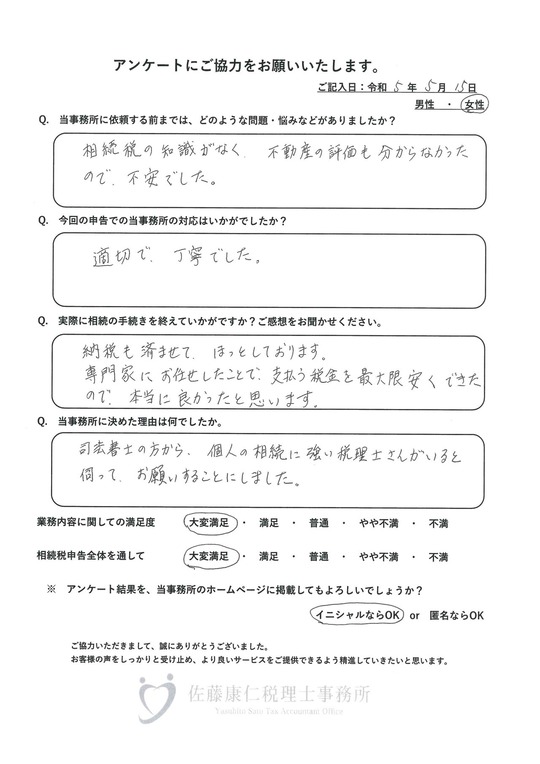 アンケートにご協力をお願いいたします。
ご記入日：令和 5 年 5 月 15 日
男性 ・ 女性
Q. 当事務所に依頼する前までは、どのような問題・悩みなどがありましたか？
相続税の知識がなく、不動産の評価も分からなかった
ので、不安でした。
Q. 今回の申告での当事務所の対応はいかがでしたか？
適切で、丁寧でした。
Q. 実際に相続の手続きを終えていかがですか？ご感想をお聞かせください。
納税も済ませて、ほっとしております。
専門家にお任せしたことで、支払う税金を最大限安くできた
ので、本当に良かったと思います。
Q. 当事務所に決めた理由は何でしたか。
司法書士の方から、個人の相続に強い税理士さんがいると
伺って、お願いすることにしました。
業務内容に関しての満足度 大変満足 ・ 満足 ・ 普通 ・ やや不満 ・ 不満
相続税申告全体を通して 大変満足 ・ 満足 ・ 普通 ・ やや不満 ・ 不満
※ アンケート結果を、当事務所のホームページに掲載してもよろしいでしょうか？
イニシャルならOK or 匿名ならOK
ご協力いただきまして、誠にありがとうございました。
お客様の声をしっかりと受け止め、より良いサービスをご提供できるよう精進していきたいと思います。
佐藤康仁税理士事務所
Yasuhito Sato Tax Accountant Office